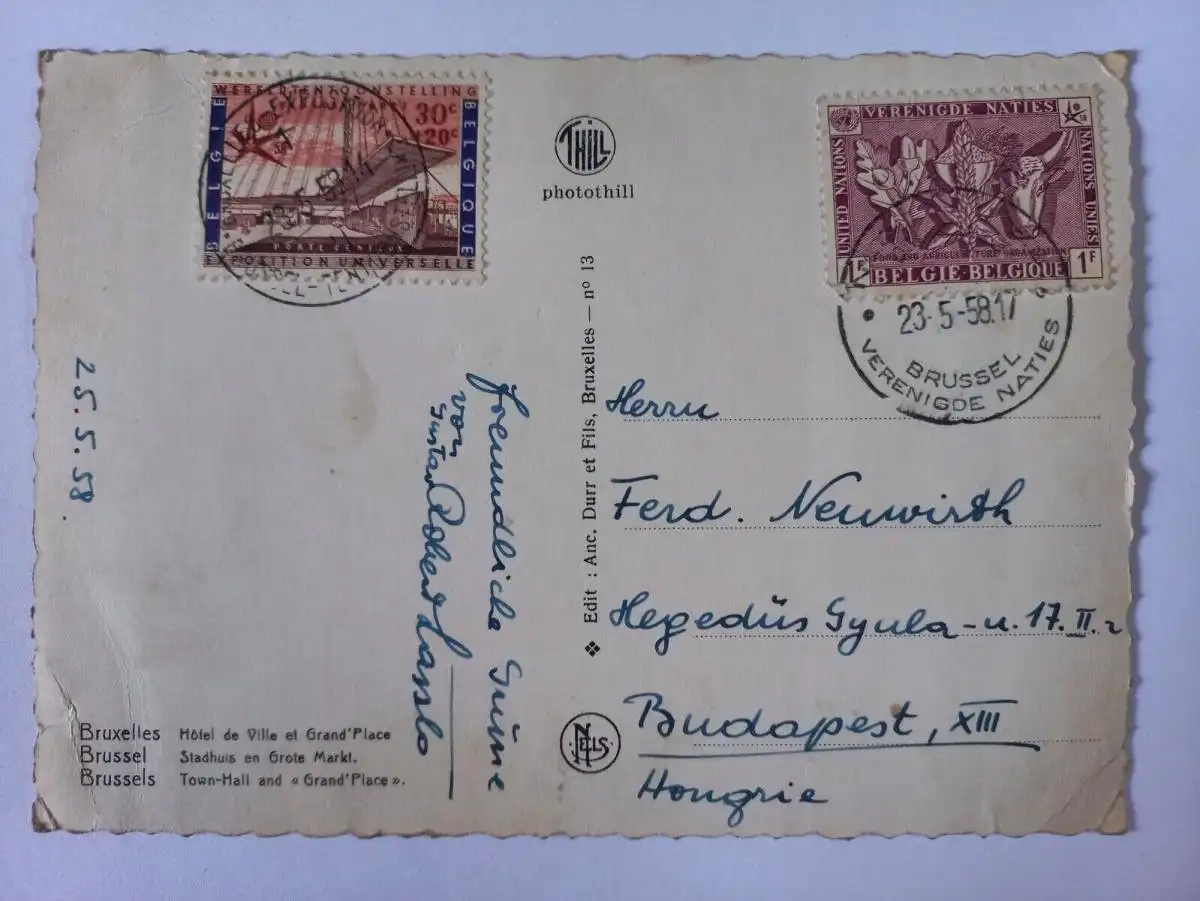 WERELDTENTOONSTELLING
30c
+20c
BELGIE
BELGIQUE
58
PORTE TENTOON
EXPOSITION UNIVERSELLE
THILL
photothill
VERENIGDE NATIES
58
UNITED NATIONS
NATIONS UNIES
FOOD AND AGRICULTURE ORGANIZATION
1F
BELGIE-BELGIQUE
1F
23-5-58.17
BRUSSEL
VERENIGDE NATIES
25.5.58
Freundliche Grüsse
von
Gustav Robert Lasslo
❖ Edit : Anc. Durr et Fils, Bruxelles — nº 13
Herrn
Ferd. Neuwirth
Hegedüs Gyula-u. 17. II. 2
Budapest, XIII
Hongrie
NELS
Bruxelles Hôtel de Ville et Grand'Place
Brussel Stadhuis en Grote Markt.
Brussels Town-Hall and « Grand'Place ».